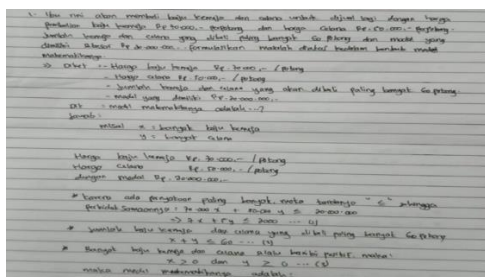 1.- Ibu rini akan membeli baju kemeja dan celana untuk dijual lagi dengan harga
pembelian baju kemeja Rp 70.000,- perpotong dan harga celana Rp. 50.000,- perpotong.
Jumlah kemeja dan celana yang dibeli paling banyak 60 potong dan modal yang
dimiliki
=> Diket -- Harga baju kemeja Rp. 70.000,- /potong
- Harga celana Rp. 50.000,- /potong
- Jumlah kemeja dan celana yang akan dibeli paling banyak 60 potong.
- modal yang dimiliki Rp.
Dit : model matematikanya adalah...?
Jawab :
misal x = banyak baju kemeja
y = banyak celana
Harga baju kemeja Rp. 70.000,- /potong
Harga celana Rp. 50.000,- /potong
dengan modal Rp.
* karena ada pernyataan paling banyak, maka tandanya "≤" sehingga
* Jumlah baju kemeja dan celana yang dibeli paling banyak 60 potong
x + y ≤ 60 ...
* Banyak baju kemeja dan celana selalu bernilai positif, maka:
x ≥ 0 dan y ≥ 0 ... (3)
maka model matematikanya adalah :